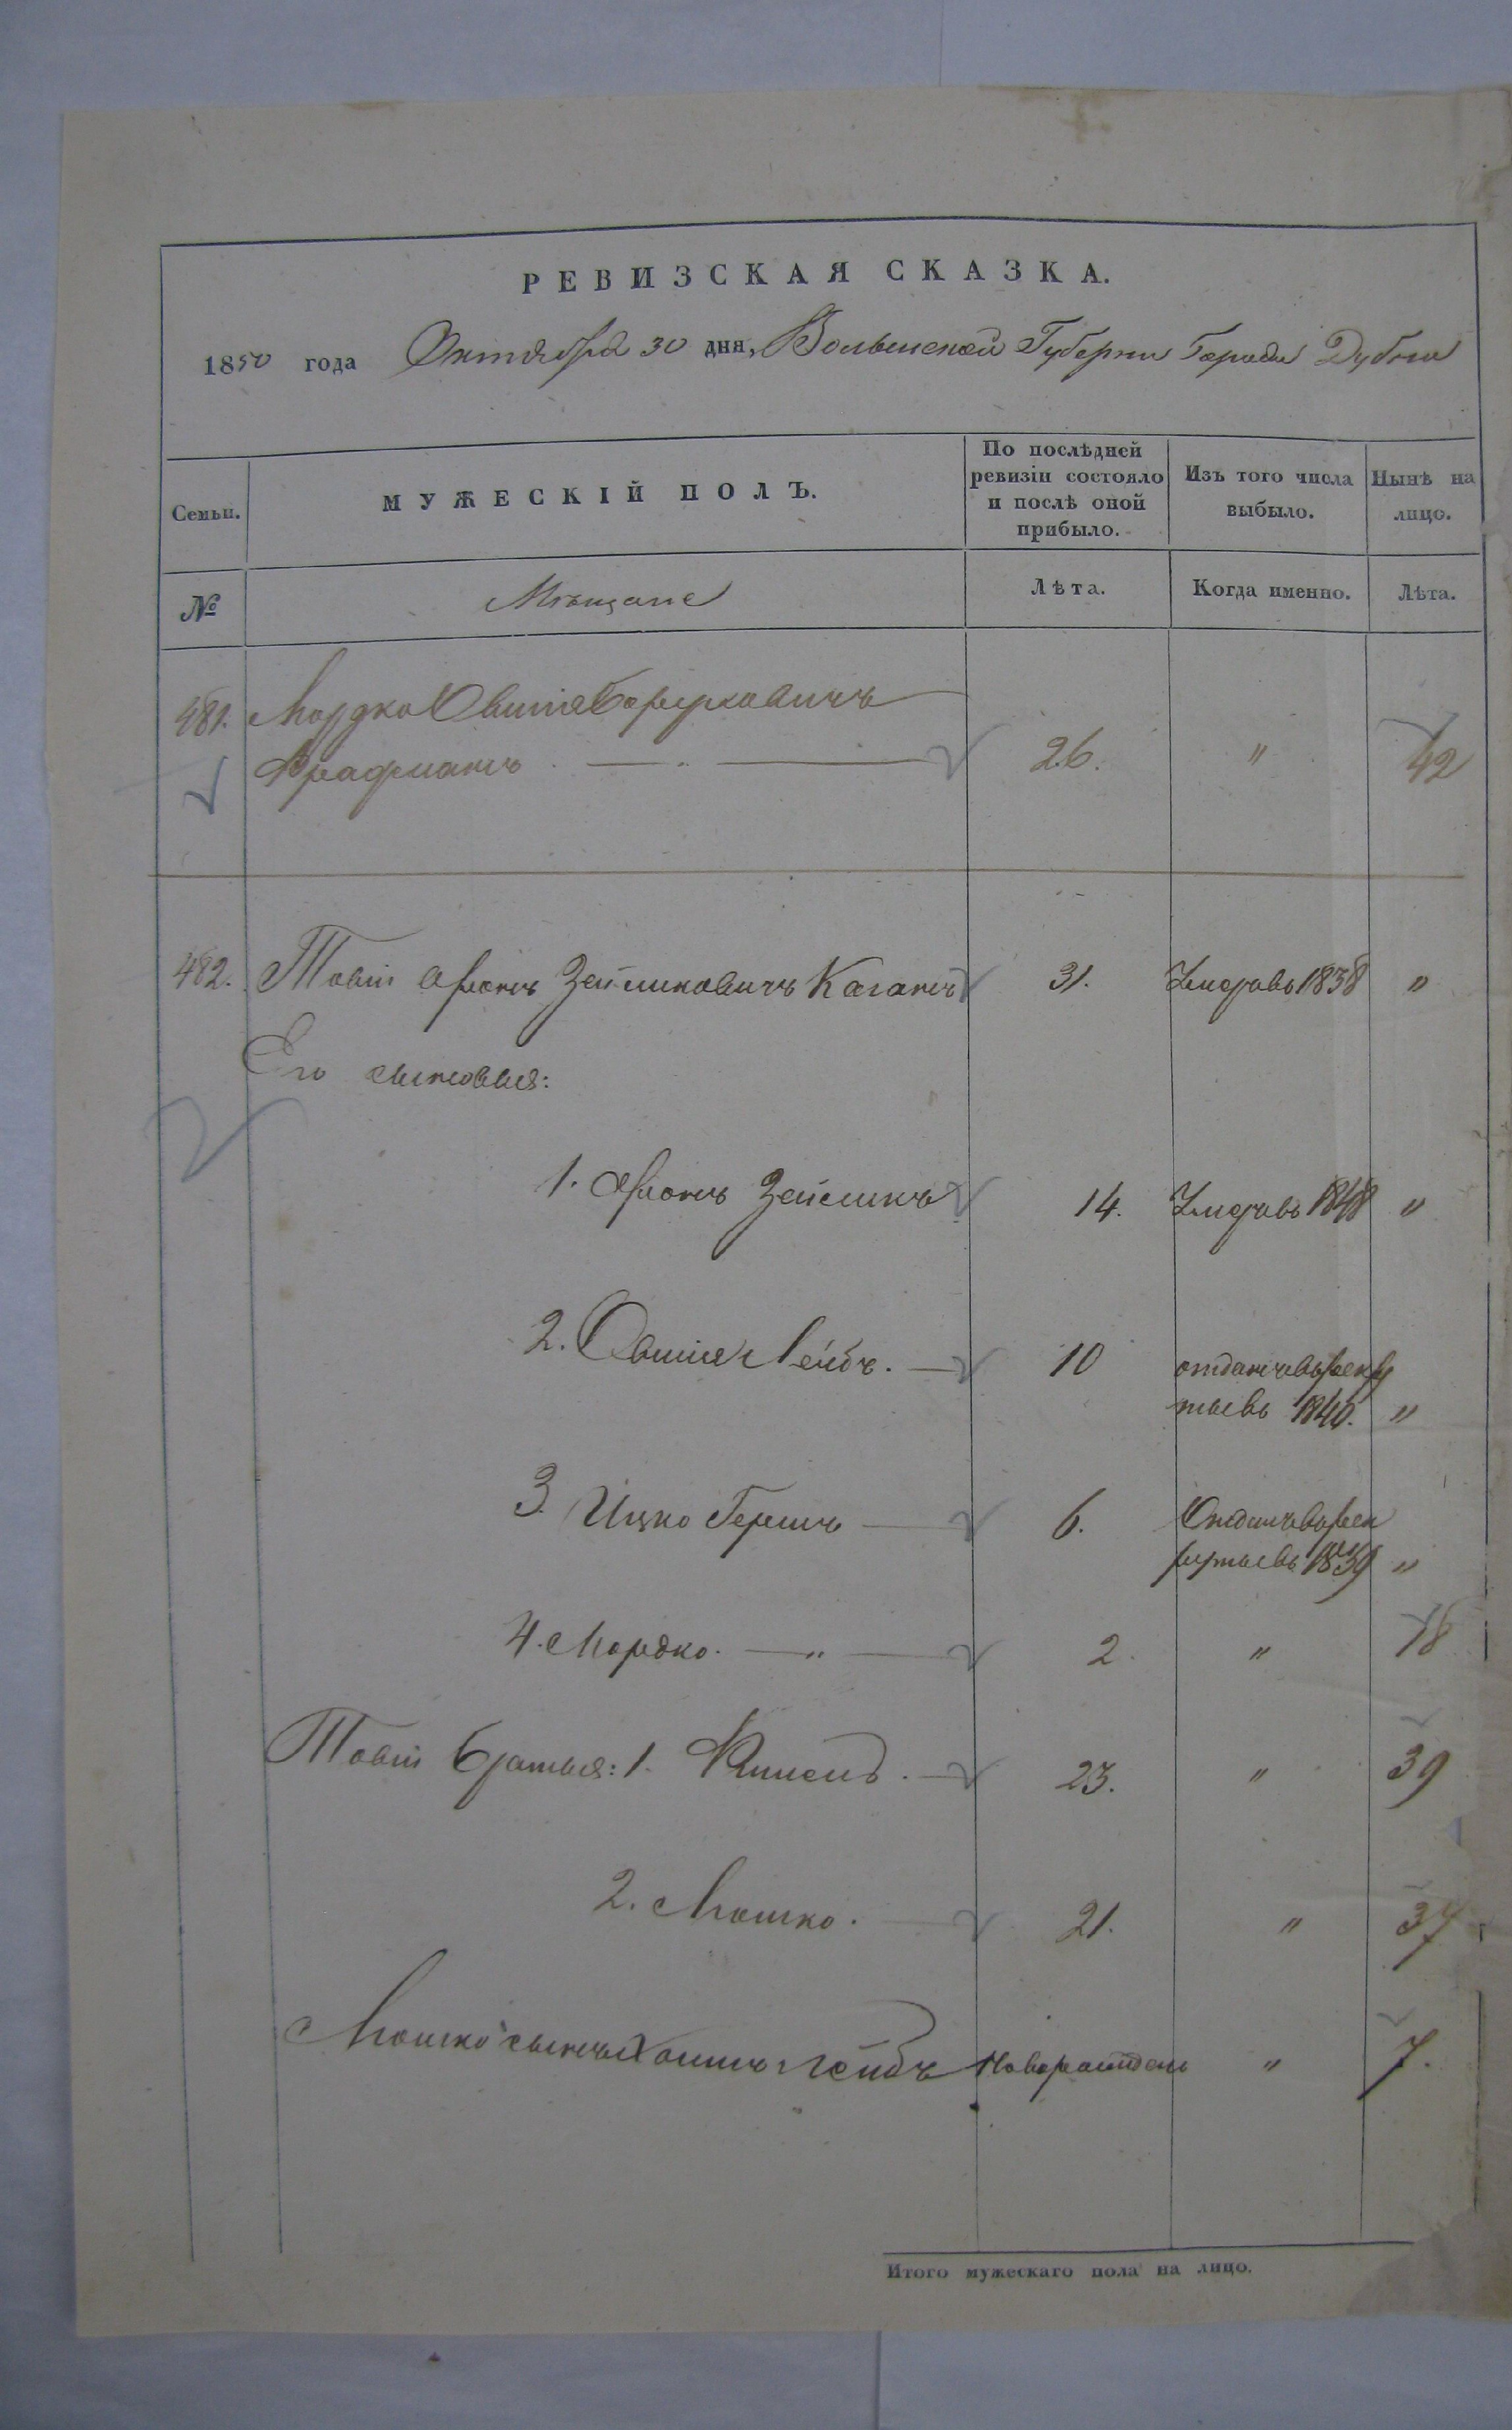 РЕВИЗСКАЯ СКАЗКА.
1850 года Октября 30 дня, Волынской Губернии Города Дубна
Семьи.
МУЖЕСКІЙ ПОЛЪ.
По послѣдней ревизіи состояло и послѣ оной прибыло.
Изъ того числа выбыло.
Нынѣ на лицо.
№ Мѣщане Лѣта. Когда именно. Лѣта.
481. Мордко Овшія Борурховичъ
26. " 42
482. Товіи Аронъ Зейликовичъ Каганъ 31. Умеръ въ 1838 "
Его сыновья:
1. Аронъ Зейликъ 14. Умеръ въ 1848 "
2. Овшія Лейбъ. 10 отданъ въ рекру
ты въ 1840. "
3. Ицко Гершъ 6. Отданъ въ рек
руты въ 1839 "
4. Мордко. " 2. " 18
Товіи братья: 1. 23. " 39
2. Мошко. 21. " 37
Мошко сынъ Хаимъ Лейбъ Новорожденъ " 7.
Итого мужескаго пола на лицо.